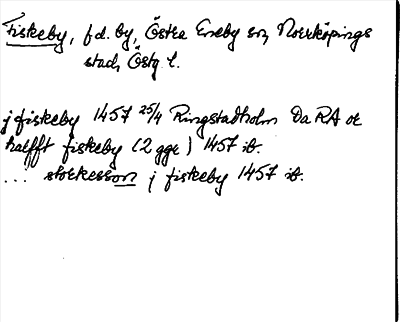 Fiskeby, f.d. by, Östra Eneby sn, Norrköpings
stad, Östg. l.
j fiskeby 1457 25/4 Ringstadholm Da RA or
halfft fiskeby (2 ggr) 1457 ib.
... storkesson j fiskeby 1457 ib.